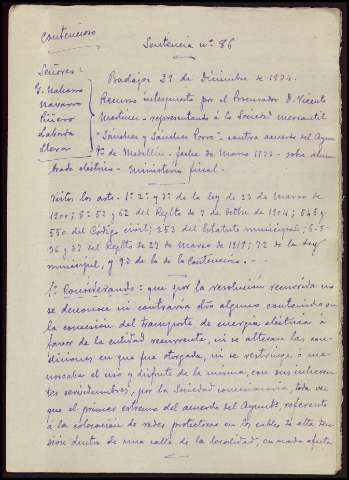 Contencioso
Sentencia nº 86
Señores:
G. Naharro
Navarro
Piñero
Laborda
Llera
Badajoz 29 de Diciembre de 1934.
Recurso interpuesto por el Procurador D. Vicente
Martínez - representando a la Sociedad Mercantil
"Sánchez y Sánchez Porro" - contra acuerdo del Ayun
tº de Medellín - fecha de Marzo 1933 - sobre alum
brado eléctrico - Ministerio fiscal.
Vistos los arts. 1º 2º y 3º de la ley de 23 de Marzo de
1900; 52 y 62 del Reglto de 7 de Octbre de 1904; 545 y
550 del Código civil; 253 del Estatuto municipal; 
36 y 37 del Reglto de 27 de Marzo de 1919; 72 de la Ley
municipal, y 93 de la de lo Contencioso. -
1º Considerando: que por la resolución recurrida no
se desconoce ni contraría dro alguno contenido en
la concesión del transporte de energía eléctrica a
favor de la entidad recurrente, ni se alteran las con-
diciones en que fue otorgada, ni se restringe ó me-
noscaba el uso y disfrute de la misma, con sus inheren-
tes servidumbres, por la Sociedad concesionaria, toda vez
que el primer extremo del acuerdo del Ayuntº, referente
á la colocación de redes protectoras en los cables de alta ten-
sión dentro de una calle de la localidad, en nada afecta